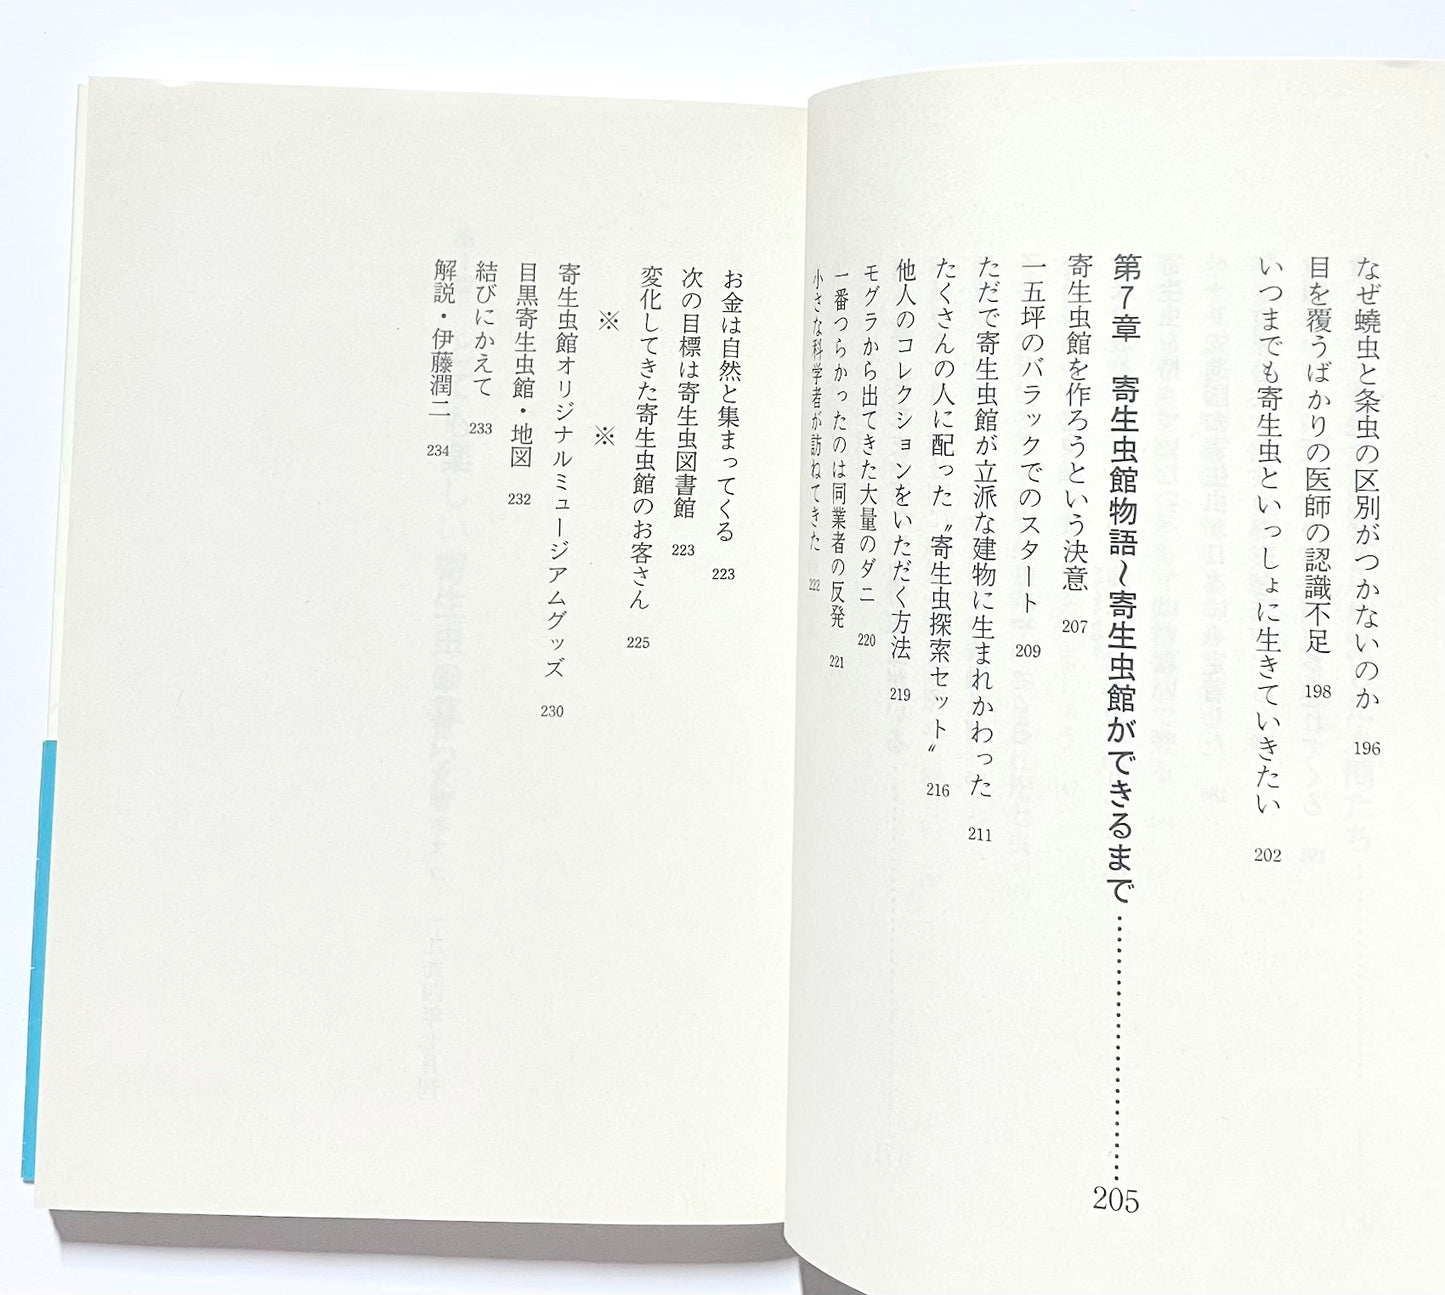 なぜ蟯虫と条虫の区別がつかないのか 196
目を覆うばかりの医師の認識不足 198
いつまでも寄生虫といっしょに生きていきたい 202
第7章 寄生虫館物語〜寄生虫館ができるまで……………………205
寄生虫館を作ろうという決意 207
一五坪のバラックでのスタート 209
ただで寄生虫館が立派な建物に生まれかわった 211
たくさんの人に配った〝寄生虫探索セット〟 216
他人のコレクションをいただく方法 219
モグラから出てきた大量のダニ 220
一番つらかったのは同業者の反発 221
小さな科学者が訪ねてきた 222
お金は自然と集まってくる 223
次の目標は寄生虫図書館 223
変化してきた寄生虫館のお客さん 225
※ ※
寄生虫館オリジナルミュージアムグッズ 230
目黒寄生虫館・地図 232
結びにかえて 233
解説・伊藤潤二 234